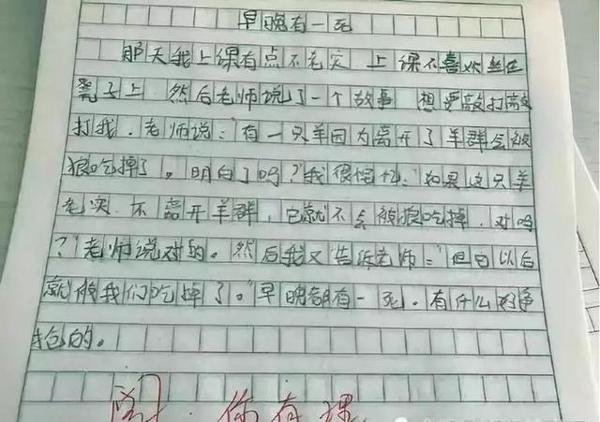 早晚有一死
那天我上课有点不老实 上课不喜欢坐在
凳子上 然后老师说了一个故事 想要敲打敲
打我.老师说:"有一只羊因为离开了羊群会被
狼吃掉了。明白了吗?"我很惜怕:"如果这只羊
老实 不离开羊群,它就不会被狼吃掉.对吗
?"老师说对的。然后我又告诉老师:"但日以后
就被我们吃掉了。"早晚都有一死.有什么好争
抢的。
阅:你有理